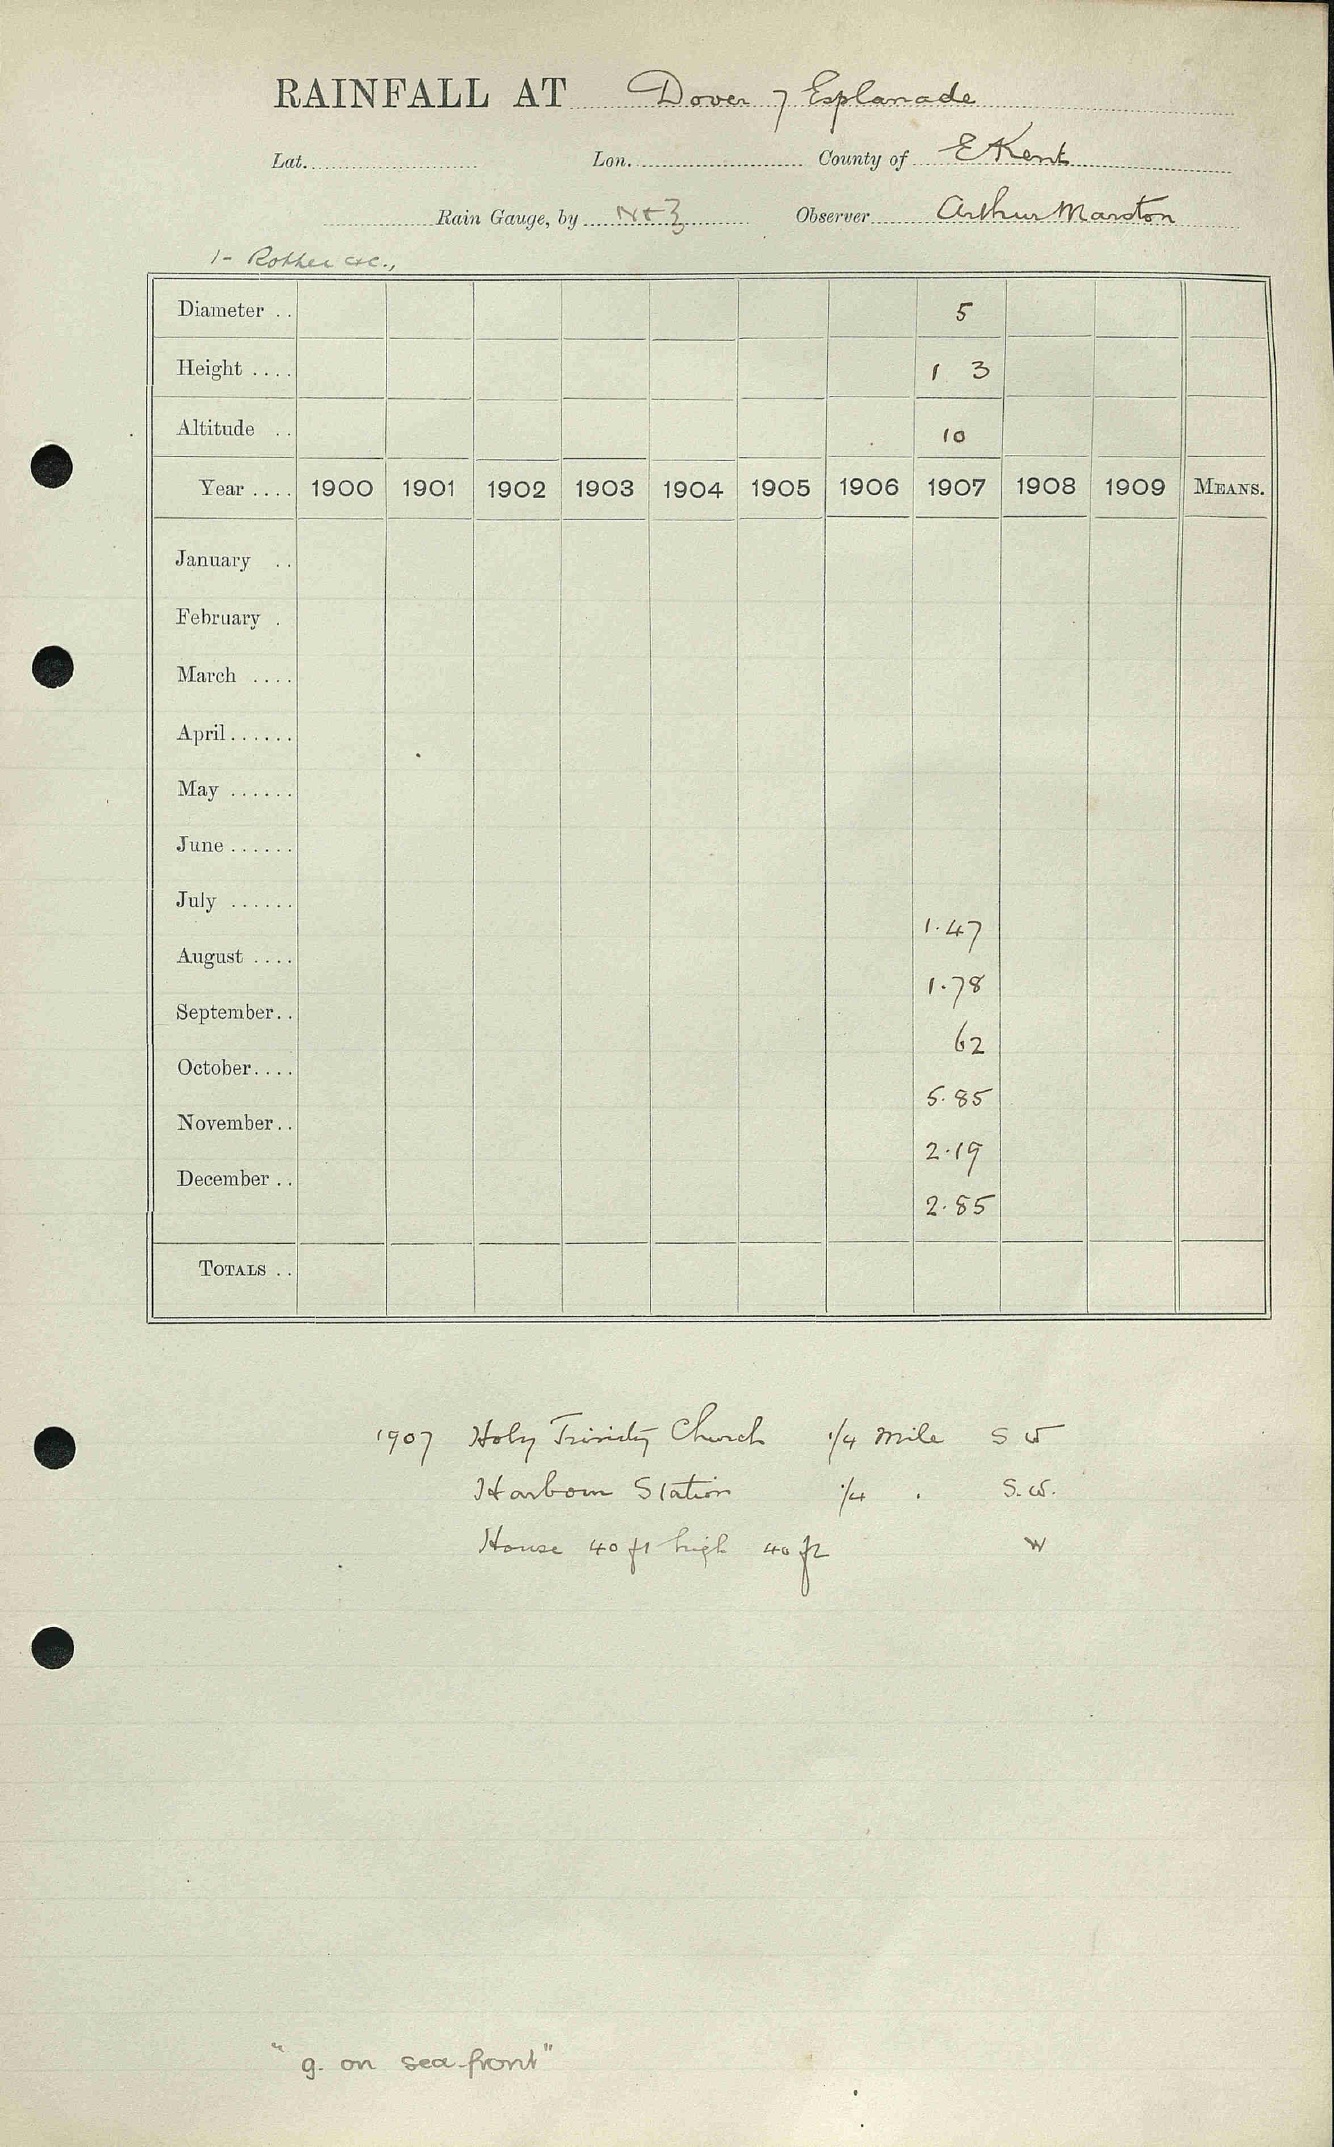 RAINFALL AT Dover 7 Esplanade
Lat. Lon. County of E Kent
Rain Gauge, by N & Z Observer Arthur Marston
1- Rother &c.,
Diameter . . 5
Height . . . . 1 3
Altitude . . 10
Year . . . . 1900 1901 1902 1903 1904 1905 1906 1907 1908 1909 MEANS.
January . .
February .
March . . . .
April . . . . . .
May . . . . . .
June . . . . . .
July . . . . . . 1.47
August . . . . 1.78
September. . 62
October. . . . 5.85
November. . 2.19
December . . 2.85
TOTALS . .
1907 Holy Trinity Church 1/4 mile S W
Harbour Station 1/4 . S.W.
House 40 ft high 40 ft W
" g. on sea-front"